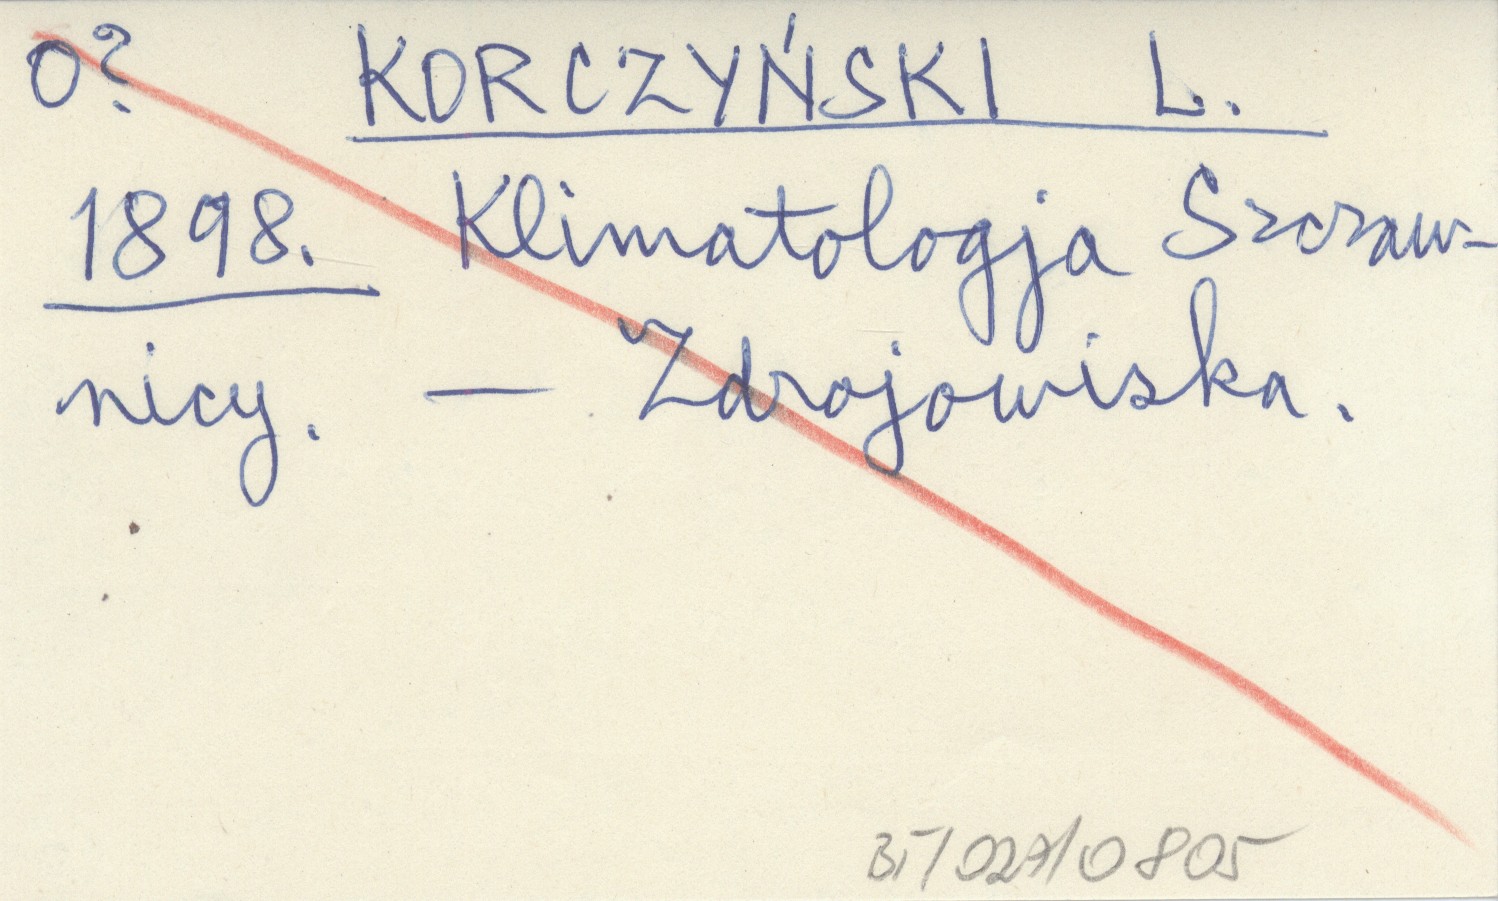 0? KORCZYŃSKI L.
1898. Klimatologja Szczaw-
nicy. — Zdrojowiska.
BI/027/0805